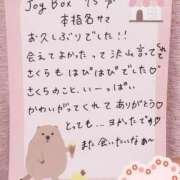 Joy Box 75分
本指名サマ
お久しぶりでした!!
会えてよかったって沢山言ってくれて
さくらもはぴはぴでした♡
さくらのこと、いーっぱい
かわいがってくれて ありがとう♡
とっても…ヨかったです
また会いたいなぁ〜